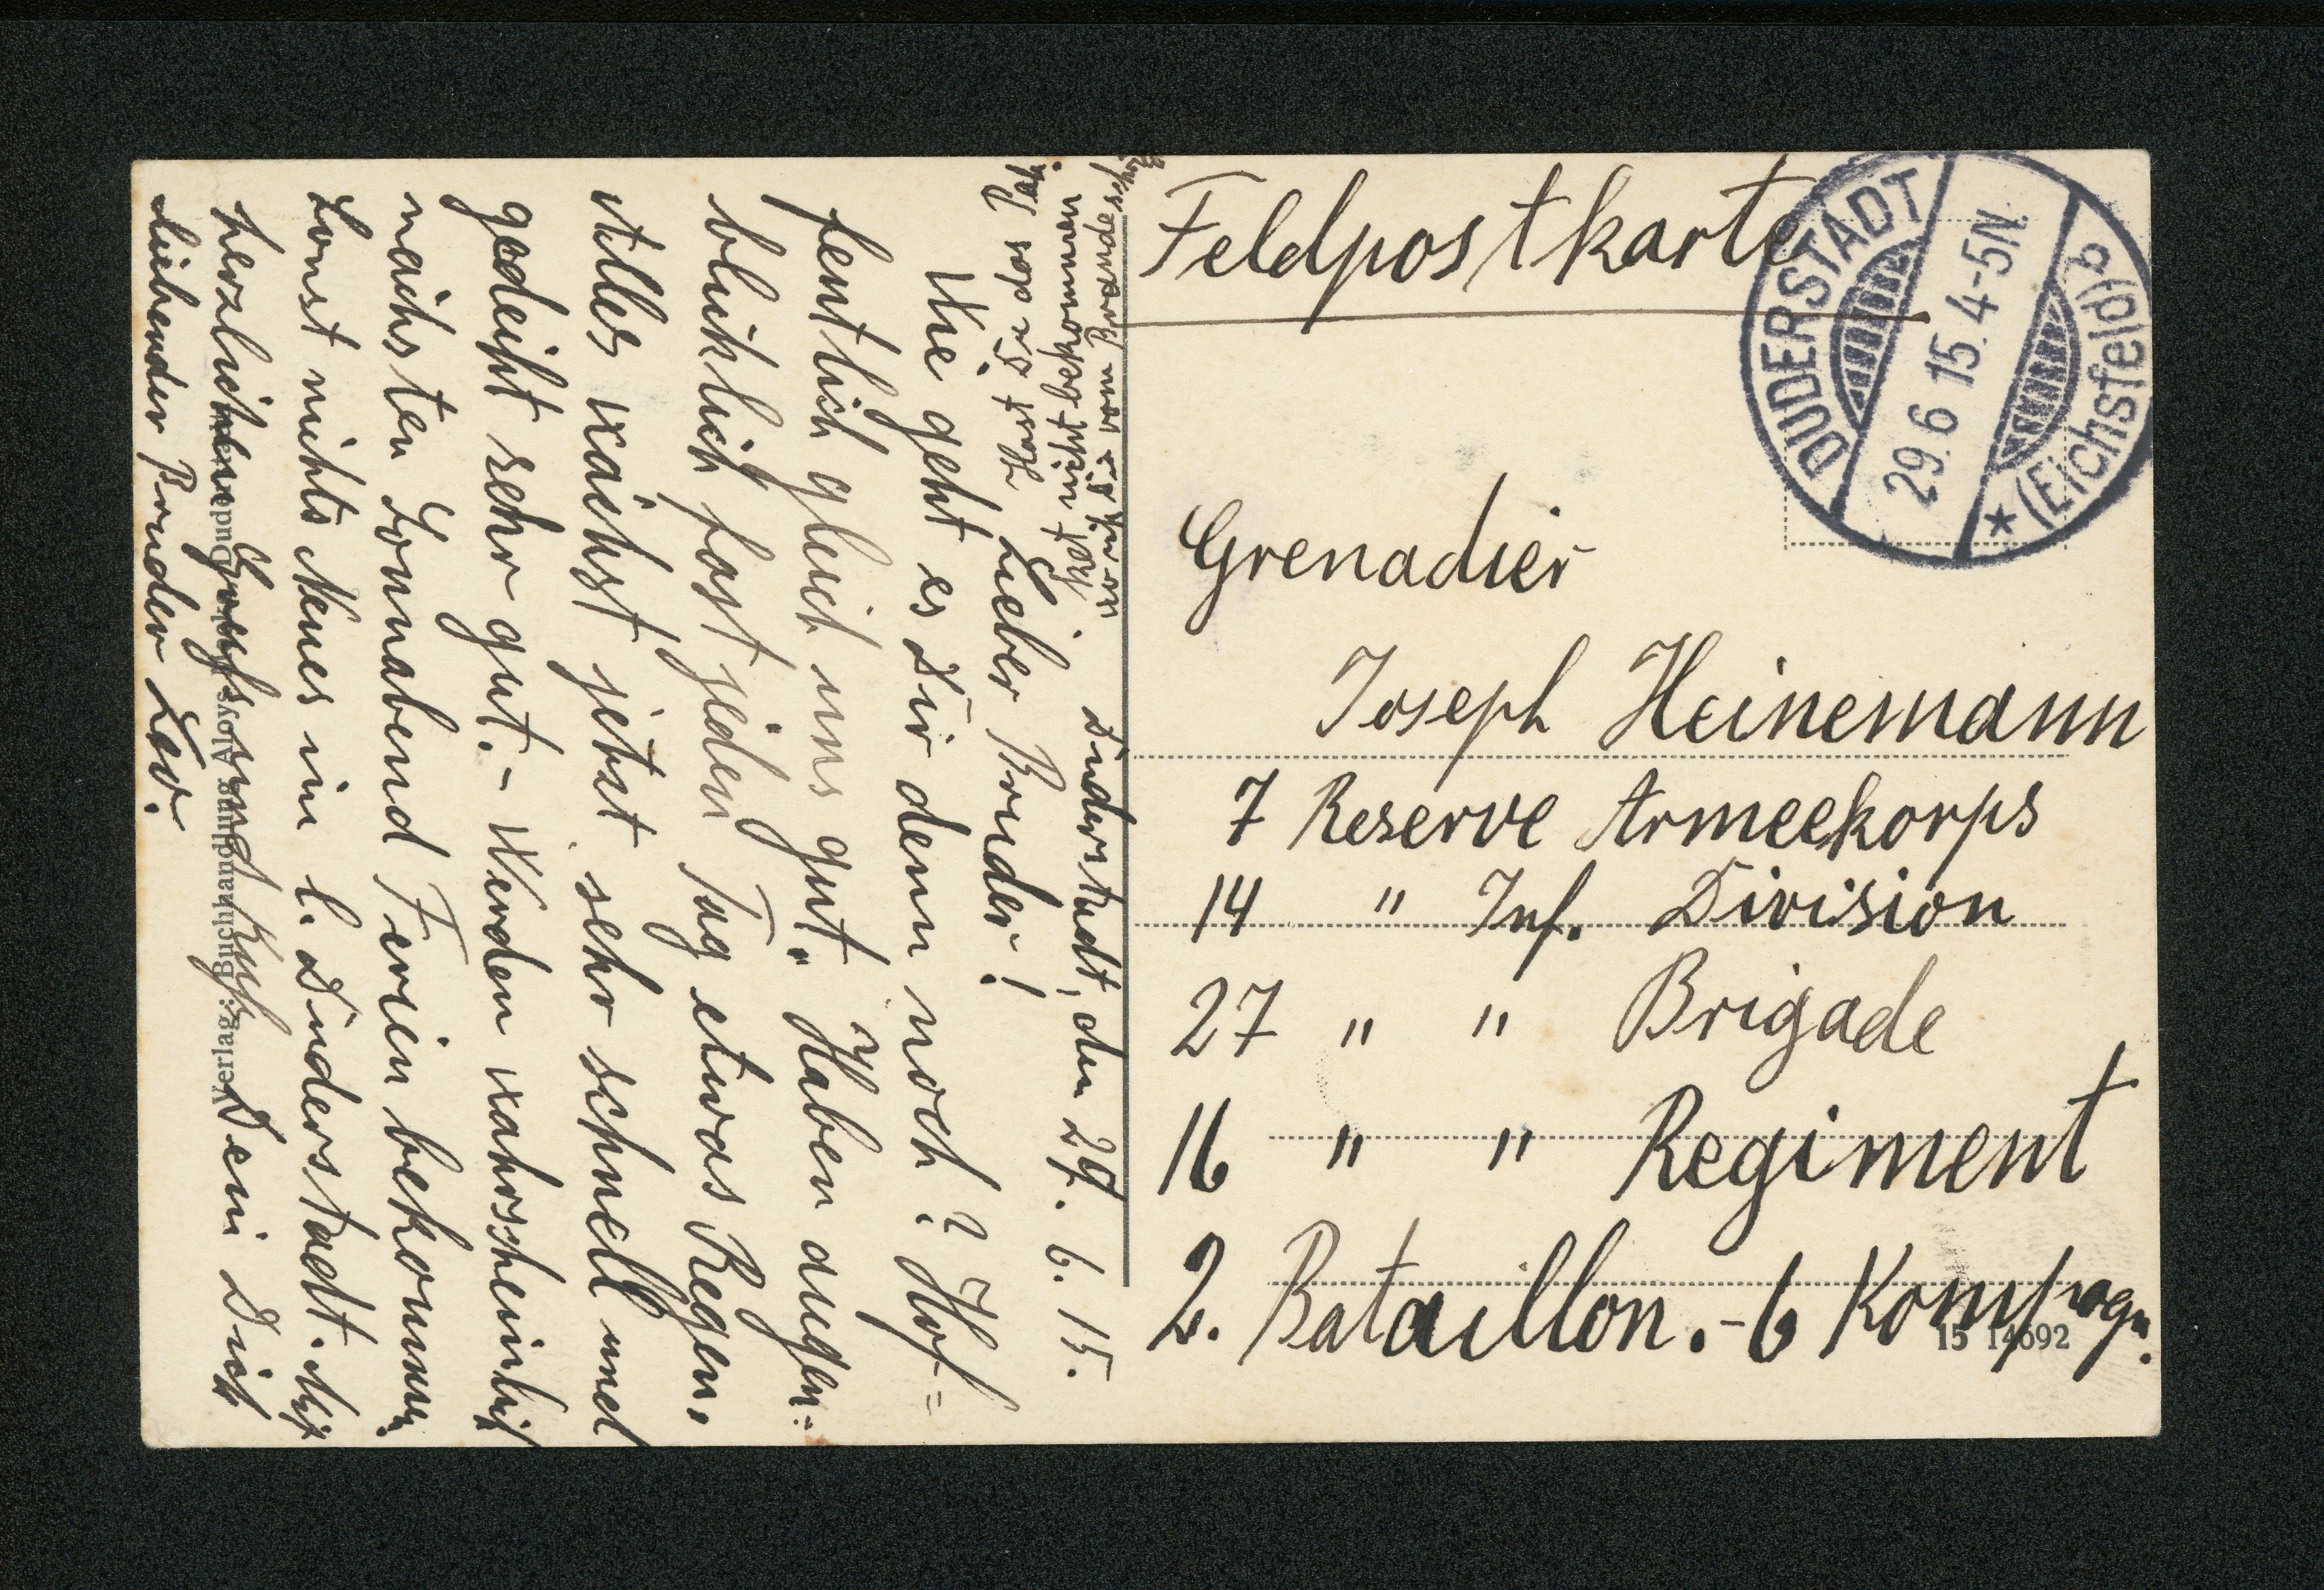 Feldpostkarte
DUDERSTADT
29.6 15. 4-5N.
* (Eichsfeld) b
Grenadier
Joseph Heinemann
7 Reserve Armeekorps
14 " Inf. Division
27 " " Brigade
16 " " Regiment
2. Bataillon. - 6 Kompagn.
15 14692
Duderstadt, den 29. 6. 15.
Lieber Bruder!
Wie geht es Dir denn noch? Hof=
fentlich gleich uns gut. Haben augen=
blicklich fast jeden Tag etwas Regen,
Alles wächst jetzt sehr schnell und
gedeiht sehr gut. - Werden wahrscheinlich
nächsten Sonnabend Ferien bekommen.
Sonst nichts Neues in l. Duderstadt. Mit
herzlichem Gruß und Kuß Dein Dich
liebender Bruder
Hast Du das
nicht bekommen
vom
Verlag: Buchhandlung